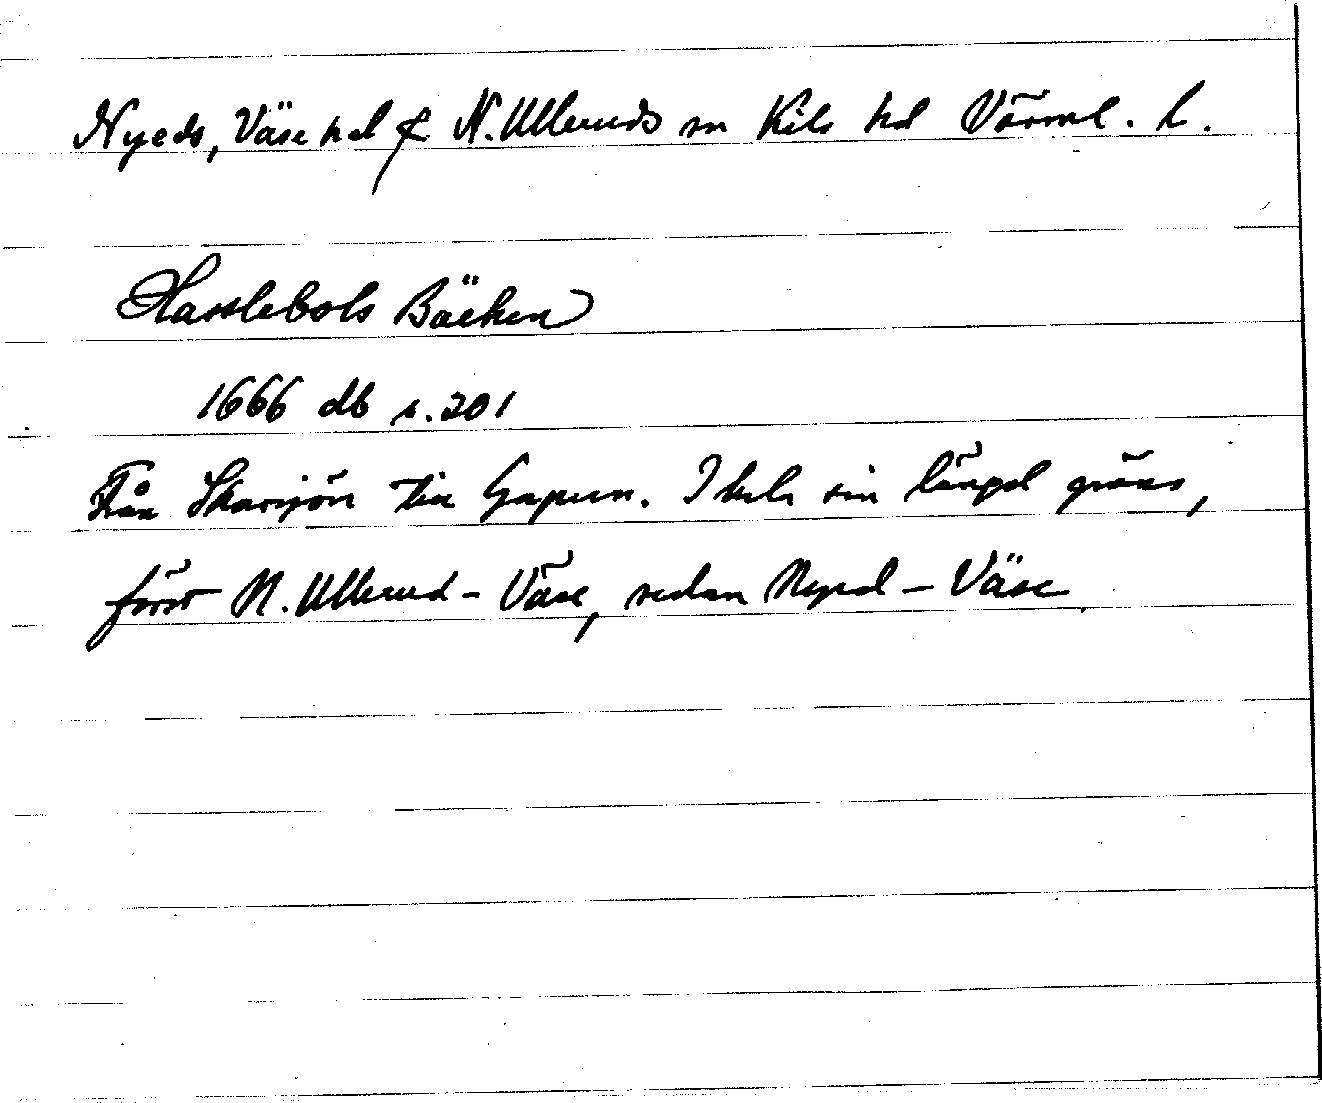 Nyeds, Väse hd & N. Ulleruds sn Kils hd Värml. l.
Hasslebols Bäcken
1666 db s. 201
Från Skarsjön till Gapern. I hela sin längd gräns,
först N. Ullerud - Väse, sedan Nyed - Väse